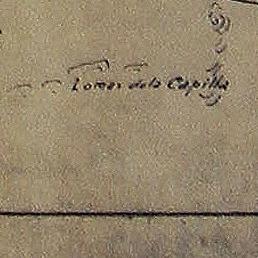 Lomas de la Capilla